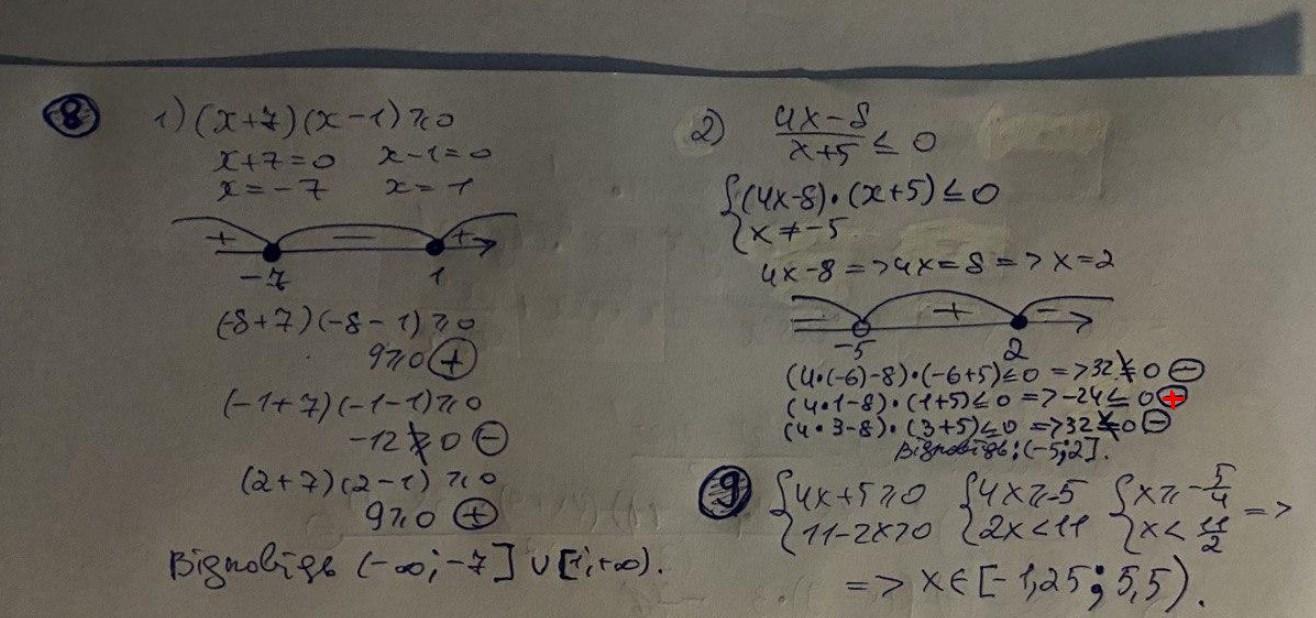 8 1) (x+7)(x-1)≥0
x+7=0 x-1=0
x=-7 x=1
+ - +
-7 1
(-8+7)(-8-1)≥0
9≥0 ⊕
(-1+7)(-1-1)≥0
-12≱0 ⊖
(2+7)(2-1)≥0
9≥0 ⊕
Відповідь (-∞;-7]∪[1;+∞).
2) (4x-8)/(x+5) ≤ 0
{(4x-8)·(x+5)≤0
{x≠-5
4x-8=>4x=8=>x=2
- + -
-5 2
(4·(-6)-8)·(-6+5)≤0 =>32≰0 ⊖
(4·1-8)·(1+5)≤0 =>-24≤0 ⊕
(4·3-8)·(3+5)≤0 =>32≰0 ⊖
Відповідь: (-5;2].
9 {4x+5≥0 {4x≥-5 {x≥-5/4
{11-2x>0 {2x<11 {x<11/2 =>
=> x∈[-1,25;5,5).